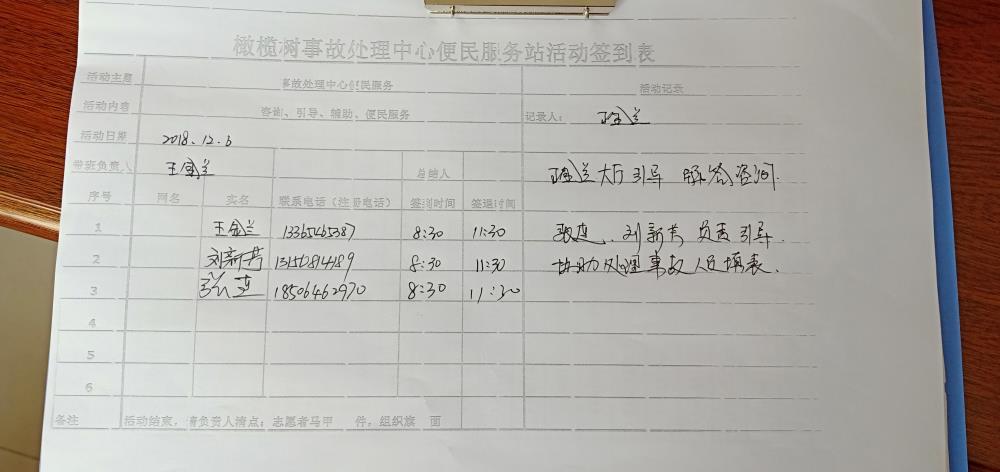 橄榄树事故处理中心便民服务站活动签到表
活动主题 事故处理中心便民服务 活动记录
活动内容 咨询、引导、辅助、便民服务 记录人： 王金兰
活动日期 2018.12.6
带班负责人 王金兰 总结人 王金兰大厅引导 解答咨询.
序号 网名 实名 联系电话（注册电话） 签到时间 签退时间
1 王金兰 13365465387 8:30 11:30 张莲、刘新芳负责引导.
2 刘新芳 13150814189 8:30 11:30 协助处理事故人员填表.
3 张莲 18506462970 8:30 11:30
4
5
6
备注 活动结束，请负责人清点：志愿者马甲 件，组织旗 面